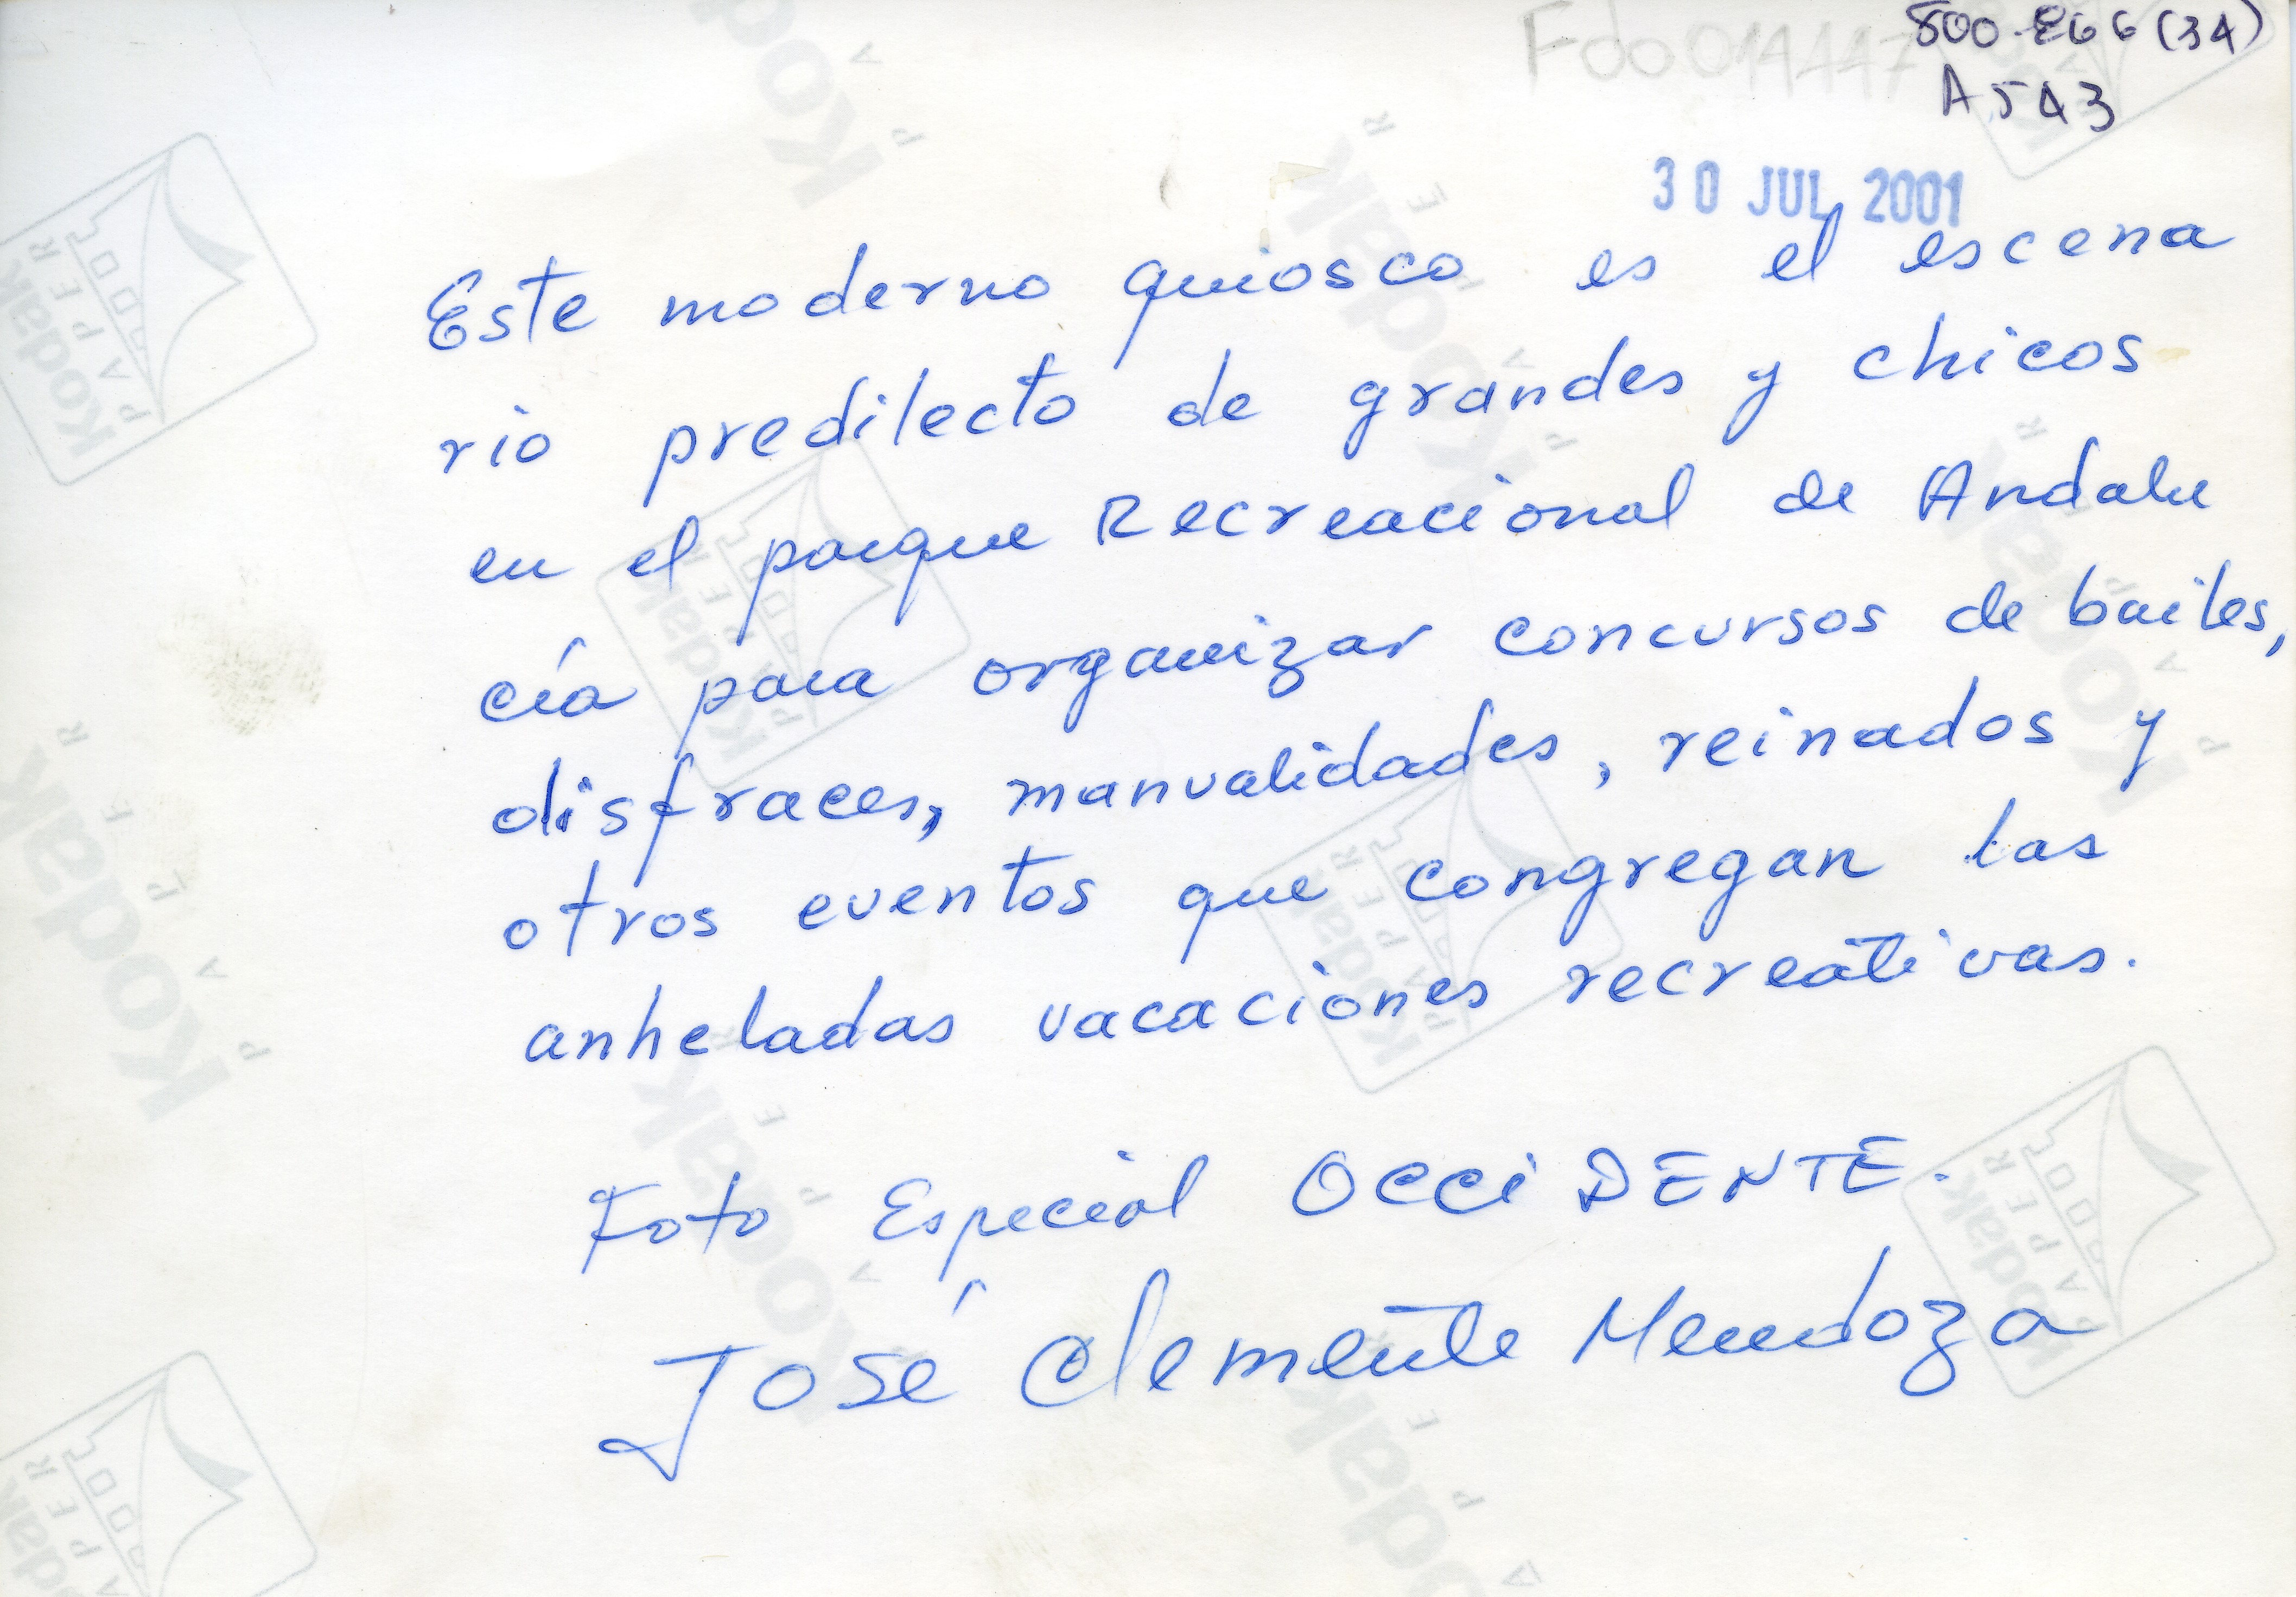 800-866 (34)
Fdo014117
A543
30 JUL 2001
Este moderno quiosco es el escena
rio predilecto de grandes y chicos
en el parque Recreacional de Andalu
cía para organizar concursos de bailes,
disfraces, manualidades, reinados y
otros eventos que congregan las
anheladas vacaciones recreativas.
Foto Especial OCCIDENTE.
José Clemente Mendoza
Kodak
PAPER